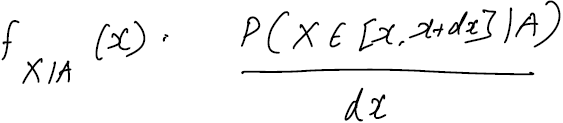 f_{X|A}(x) · P(X ∈ [x, x+dx] | A)
dx